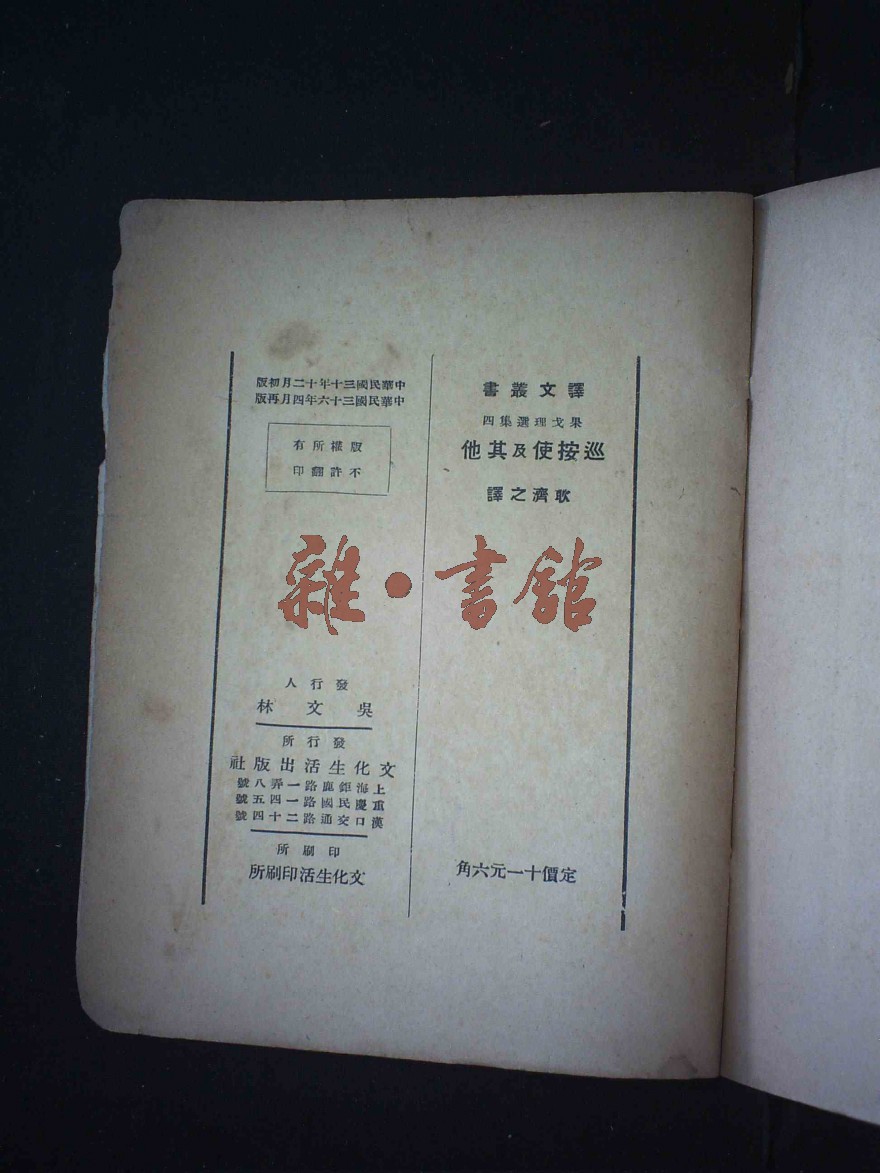 譯文叢書
果戈理選集四
巡按使及其他
耿濟之譯
定價十一元六角
中華民國三十年十二月初版
中華民國三十六年四月再版
版權所有
不許翻印
發行人
吳文林
發行所
文化生活出版社
上海鉅鹿路一弄八號
重慶民國路一四五號
漢口交通路二十四號
印刷所
文化生活印刷所
雜·書館